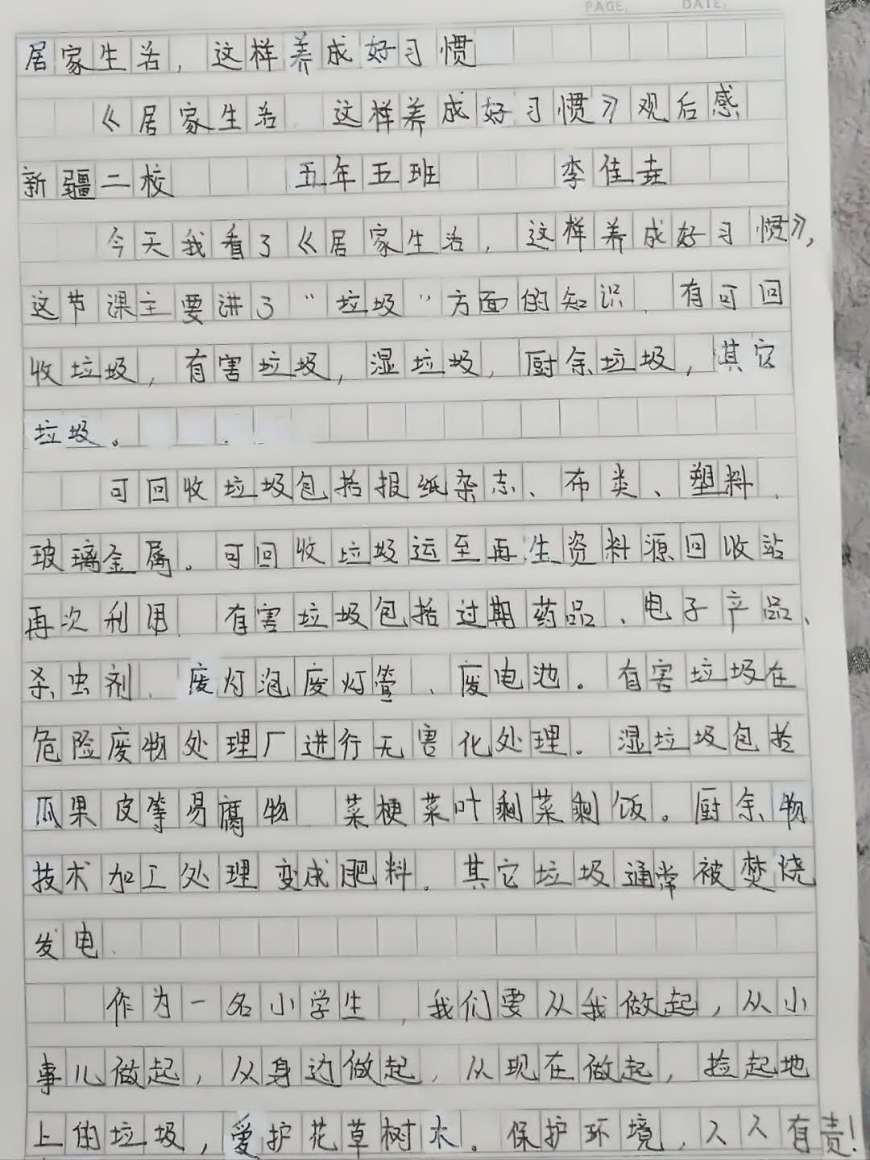 PAGE. DATE.
居家生活，这样养成好习惯
《居家生活 这样养成好习惯》观后感
新疆二校 五年五班 李佳垚
今天我看了《居家生活，这样养成好习惯》，
这节课主要讲了“垃圾”方面的知识．有可回
收垃圾，有害垃圾，湿垃圾，厨余垃圾，其它
垃圾。
可回收垃圾包括报纸杂志、布类、塑料、
玻璃金属。可回收垃圾运至再生资料源回收站
再次利用 有害垃圾包括过期药品、电子产品、
杀虫剂、废灯泡废灯管、废电池。有害垃圾在
危险废物处理厂进行无害化处理。湿垃圾包括
瓜果皮等易腐物 菜梗菜叶剩菜剩饭。厨余物
技术加工处理变成肥料。其它垃圾通常被焚烧
发电．
作为一名小学生，我们要从我做起，从小
事儿做起，从身边做起，从现在做起，捡起地
上的垃圾，爱护花草树木。保护环境，人人有责！